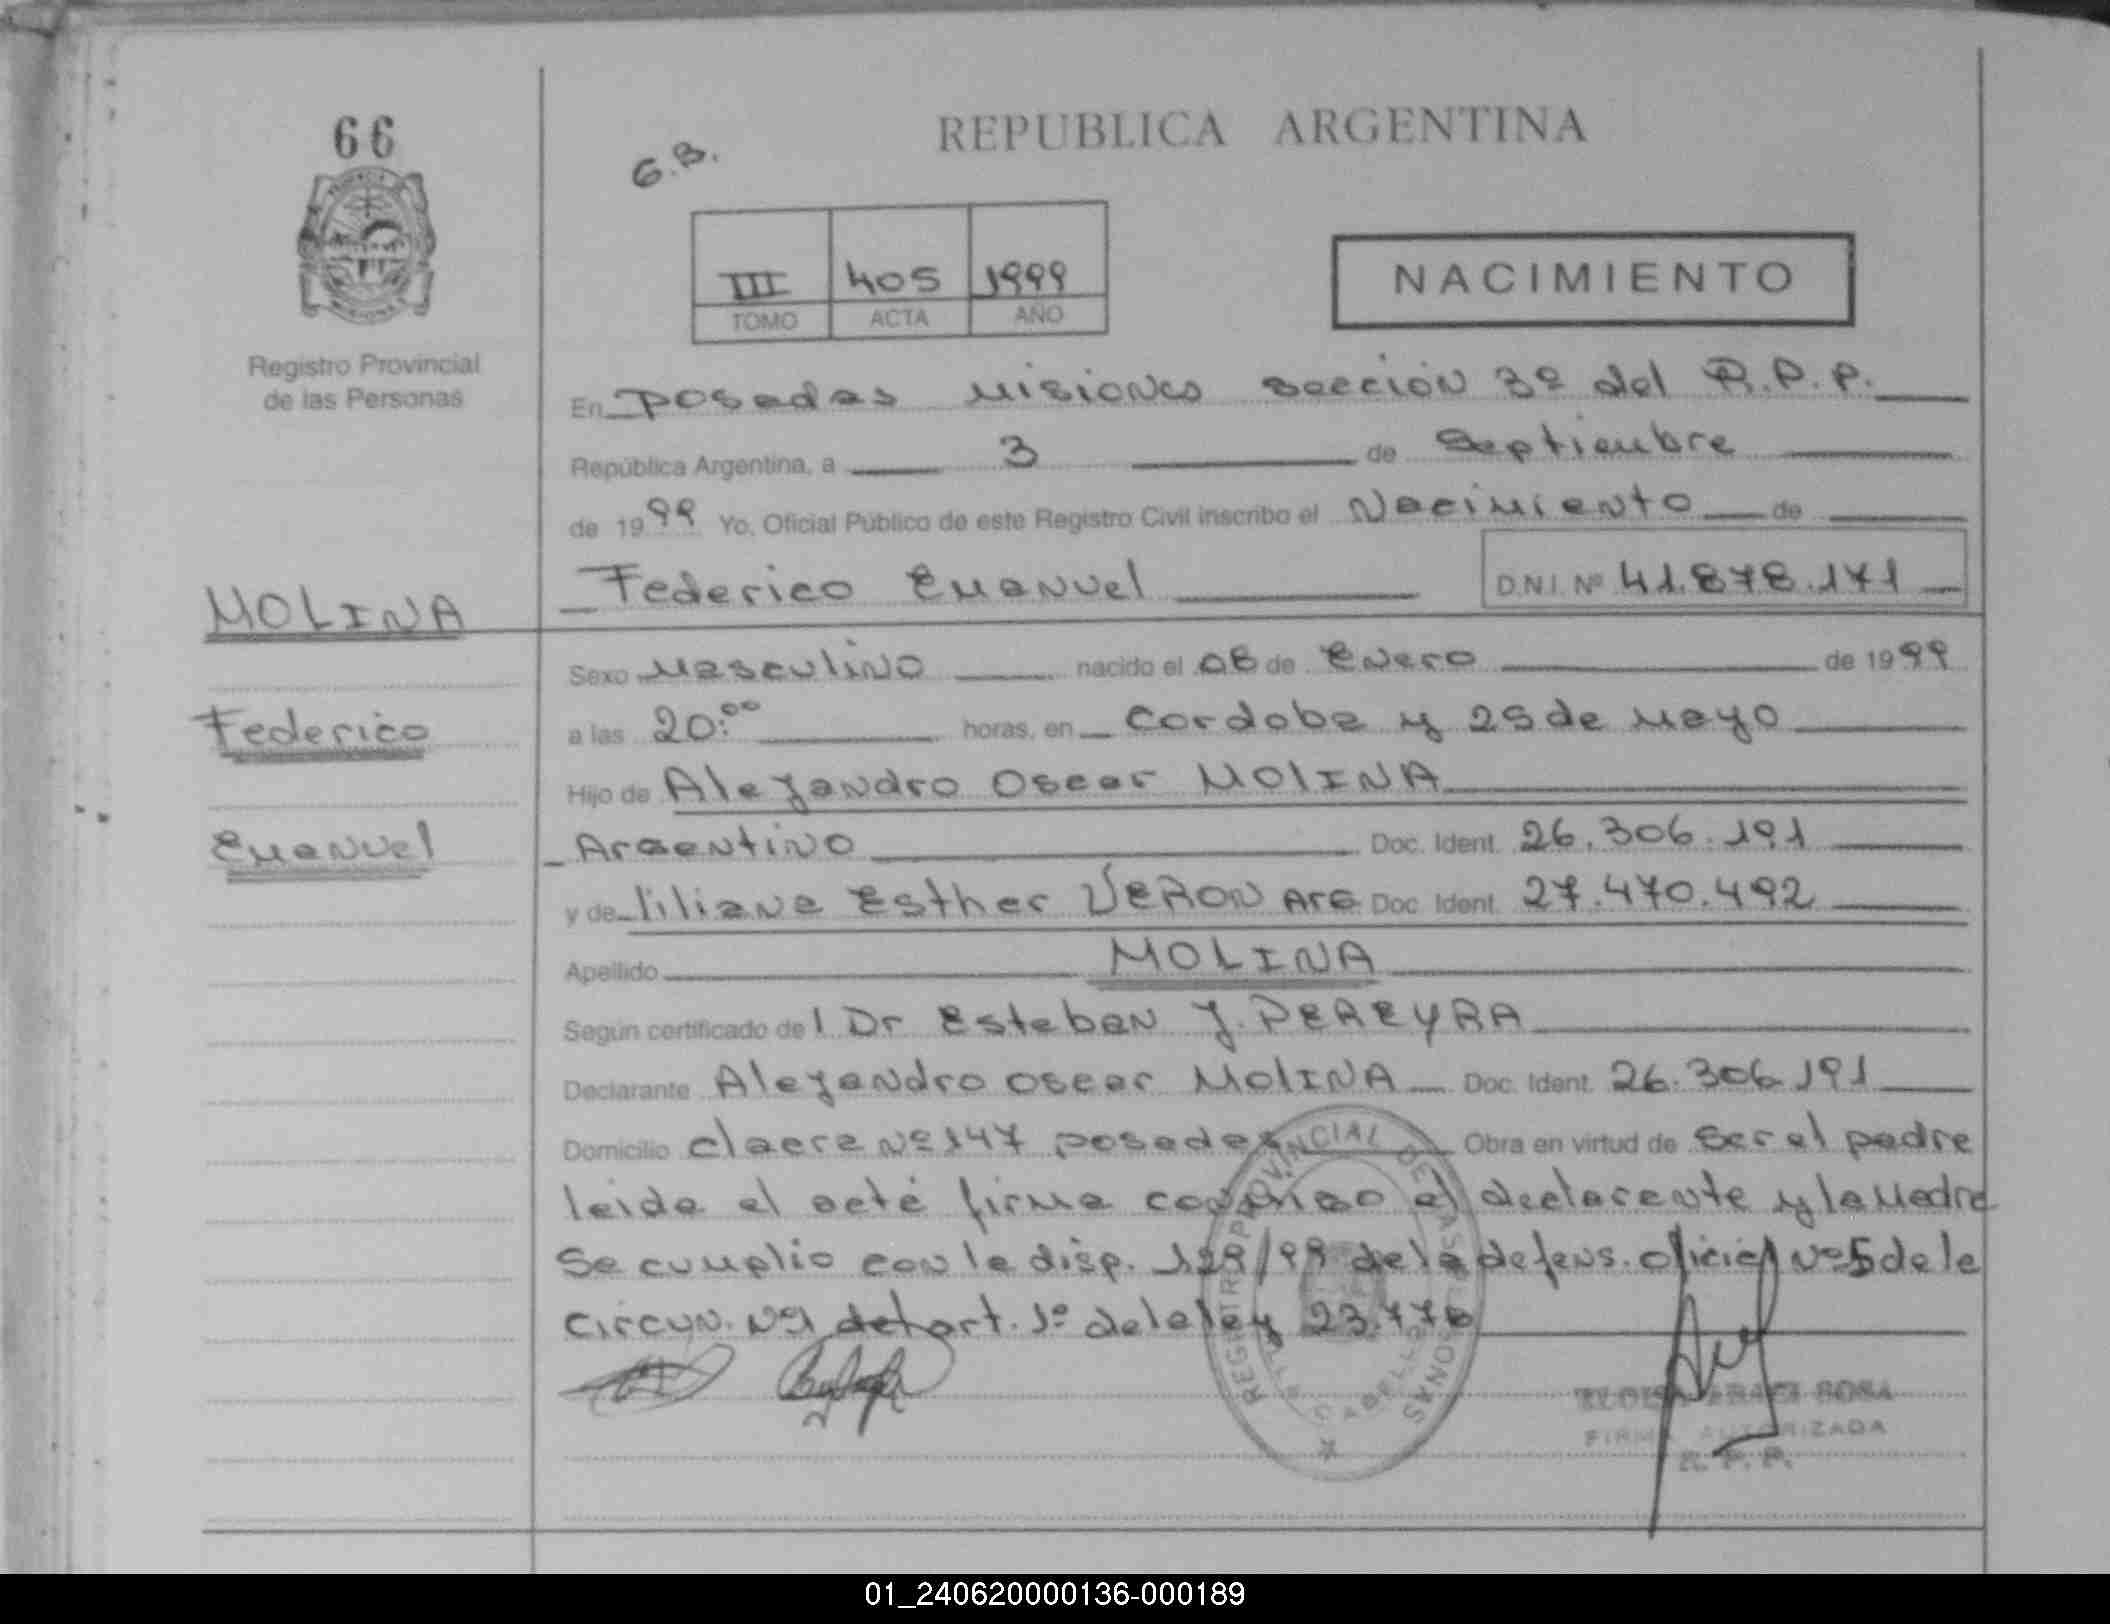 66
G.B.
REPUBLICA ARGENTINA
III 405 1999
TOMO ACTA AÑO
NACIMIENTO
Registro Provincial
de las Personas
En Posadas Misiones sección 3º del R.P.P.
República Argentina, a 3 de Septiembre
de 1999 Yo, Oficial Público de este Registro Civil inscribo el Nacimiento de
Federico Emanuel D.N.I. Nº 41.878.171
MOLINA
Federico
Emanuel
Sexo Masculino nacido el 08 de Enero de 1999
a las 20:00 horas, en Cordoba y 25 de Mayo
Hijo de Alejandro Oscar MOLINA
Argentino Doc. Ident. 26.306.191
y de liliana Esther VERON Arg Doc. Ident. 27.470.492
Apellido MOLINA
Según certificado del Dr Esteban J. PEREYRA
Declarante Alejandro Oscar MOLINA Doc. Ident. 26.306.191
Domicilio claere Nº 147 posadas Obra en virtud de ser el padre
leida el acta firma conmigo el declarante y la Madre
Se cumplio con la disp. 128/99 de la defens. oficial Nº 5 de la
circun. Nº1 del art. 1º de la ley 23.776
REGISTRO PROVINCIAL DE LAS PERSONAS
FIRMA AUTORIZADA
R.P.P.
01_240620000136-000189